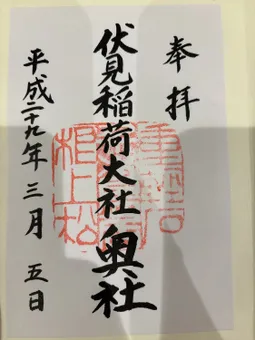 奉拝
伏見稲荷大社 奥社
平成二十九年三月五日